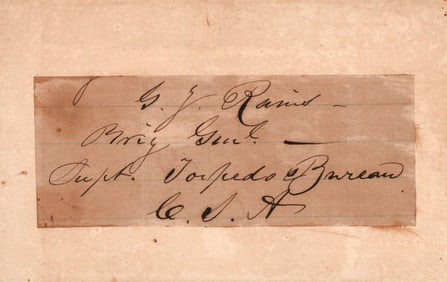 G. J. Rains -
Brig Genl. —
Supt. Torpedo Bureau
C. S. A